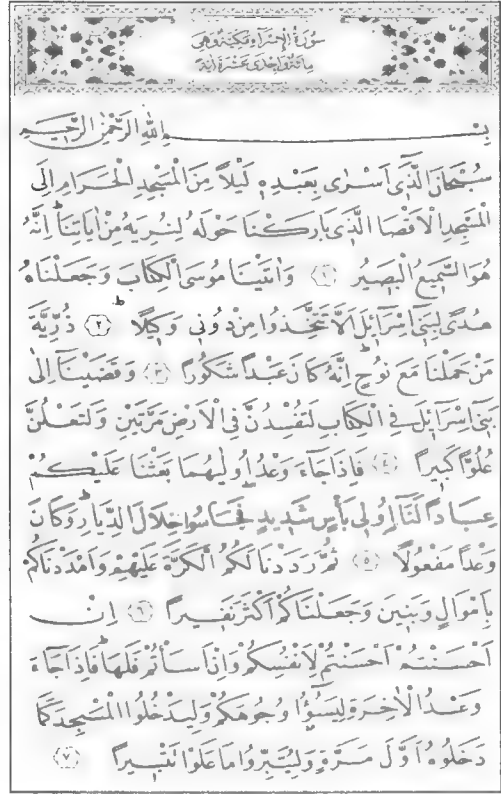 سُورَةُ الْإِسْرَاءِ مَكِّيَّةٌ وَهِيَ
مِائَةٌ وَاِحْدٰى عَشْرَةَ اٰيَةً
بِسْــــمِ اللّٰهِ الرَّحْمٰنِ الرَّحِيمِ
سُبْحَانَ الَّذٖٓي اَسْرٰى بِعَبْدِهٖ لَيْلًا مِنَ الْمَسْجِدِ الْحَرَامِ اِلَى
الْمَسْجِدِ الْاَقْصَا الَّذٖي بَارَكْنَا حَوْلَهُ لِنُرِيَهُ مِنْ اٰيَاتِنَاۜ اِنَّهُ
هُوَ السَّمٖيعُ الْبَصٖيرُ ﴿١﴾ وَاٰتَيْنَا مُوسَى الْكِتَابَ وَجَعَلْنَاهُ
هُدًى لِبَنٖٓي اِسْرَٓائٖلَ اَلَّا تَتَّخِذُوا مِنْ دُونٖي وَكٖيلًاۜ ﴿٢﴾ ذُرِّيَّةَ
مَنْ حَمَلْنَا مَعَ نُوحٍۜ اِنَّهُ كَانَ عَبْدًا شَكُورًا ﴿٣﴾ وَقَضَيْنَٓا اِلٰى
بَنٖٓي اِسْرَٓائٖلَ فِي الْكِتَابِ لَتُفْسِدُنَّ فِي الْاَرْضِ مَرَّتَيْنِ وَلَتَعْلُنَّ
عُلُوًّا كَبٖيرًا ﴿٤﴾ فَاِذَا جَٓاءَ وَعْدُ اُو۫لٰيهُمَا بَعَثْنَا عَلَيْكُمْ
عِبَادًا لَنَٓا اُو۬لٖي بَأْسٍ شَدٖيدٍ فَجَاسُوا خِلَالَ الدِّيَارِۜ وَكَانَ
وَعْدًا مَفْعُولًا ﴿٥﴾ ثُمَّ رَدَدْنَا لَكُمُ الْكَرَّةَ عَلَيْهِمْ وَاَمْدَدْنَاكُمْ
بِاَمْوَالٍ وَبَنٖينَ وَجَعَلْنَاكُمْ اَكْثَرَ نَفٖيرًا ﴿٦﴾ اِنْ
اَحْسَنْتُمْ اَحْسَنْتُمْ لِاَنْفُسِكُمْ وَاِنْ اَسَأْتُمْ فَلَهَاۜ فَاِذَا جَٓاءَ
وَعْدُ الْاٰخِرَةِ لِيَسُٓؤُ۫ا وُجُوهَكُمْ وَلِيَدْخُلُوا الْمَسْجِدَ كَمَا
دَخَلُوهُ اَوَّلَ مَرَّةٍ وَلِيُتَبِّرُوا مَا عَلَوْا تَتْبٖيرًا ﴿٧﴾